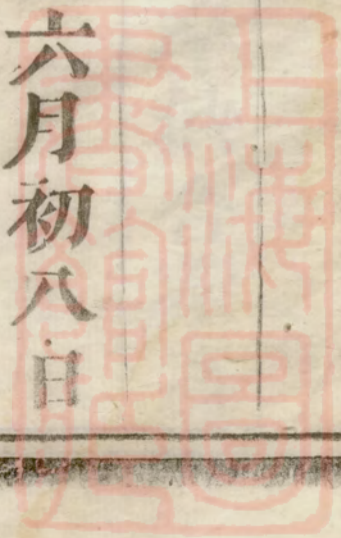 六月初八日
上海圖書館藏